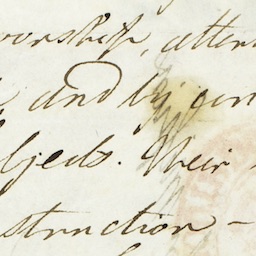 worship, atten
and by an
bjects. Their
struction –